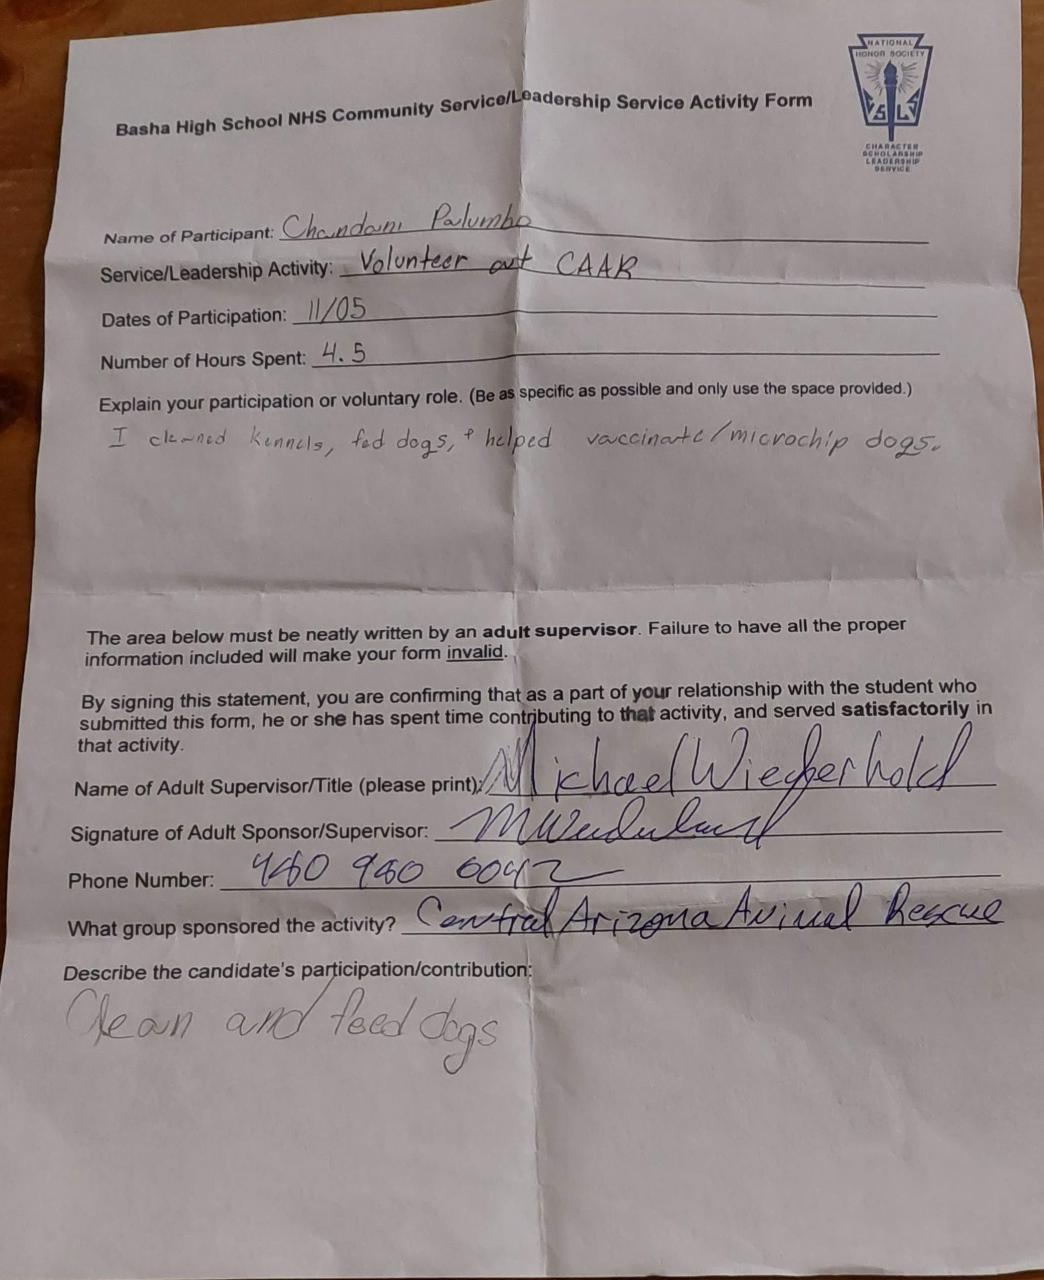 NATIONAL
HONOR SOCIETY
S L S
CHARACTER
SCHOLARSHIP
LEADERSHIP
SERVICE
Basha High School NHS Community Service/Leadership Service Activity Form
Name of Participant: Chandani Palumbo
Service/Leadership Activity: Volunteer at CAAR
Dates of Participation: 11/05
Number of Hours Spent: 4.5
Explain your participation or voluntary role. (Be as specific as possible and only use the space provided.)
I cleaned kennels, fed dogs, + helped vaccinate/microchip dogs.
The area below must be neatly written by an adult supervisor. Failure to have all the proper
information included will make your form invalid.
By signing this statement, you are confirming that as a part of your relationship with the student who
submitted this form, he or she has spent time contributing to that activity, and served satisfactorily in
that activity.
Name of Adult Supervisor/Title (please print): Michael Wiegerhold
Signature of Adult Sponsor/Supervisor:
Phone Number: 480 980 6042
What group sponsored the activity? Central Arizona Animal Rescue
Describe the candidate's participation/contribution:
Clean and feed dogs